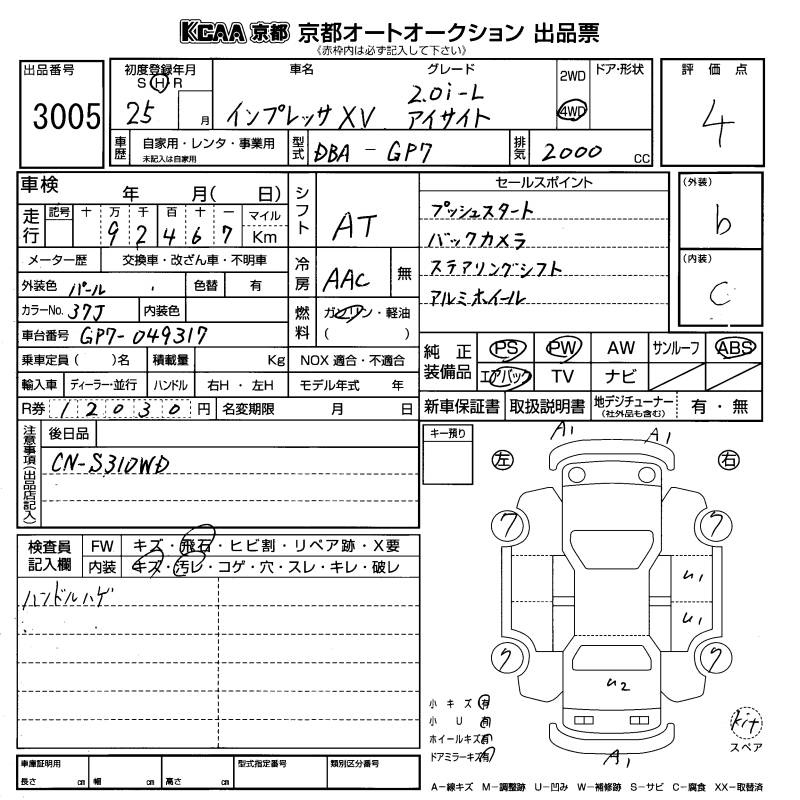 KCAA 京都 京都オートオークション 出品票
《赤枠内は必ず記入して下さい》
出品番号 初度登録年月 車名 グレード 2WD ドア・形状 評価点
S H R
3005 25 月 インプレッサXV 2.0i-L アイサイト 4WD 4
車歴 自家用・レンタ・事業用 型式 DBA - GP7 排気 2000 cc
未記入は自家用
車検 年 月( 日) シフト AT セールスポイント (外装)
走行 記号 十 万 千 百 十 一 マイル プッシュスタート b
9 2 4 6 7 Km バックカメラ
メーター歴 交換車・改ざん車・不明車 冷房 AAC 無 ステアリングシフト (内装)
外装色 パール 色替 有 アルミホイール C
カラーNo. 37J 内装色 燃料 ガソリン・軽油
車台番号 GP7-049317 ( )
乗車定員( )名 積載量 Kg NOX 適合・不適合 純正装備品 PS PW AW サンルーフ ABS
輸入車 ディーラー・並行 ハンドル 右H・左H モデル年式 年 エアバック TV ナビ
R券 12030 円 名変期限 月 日 新車保証書 取扱説明書 地デジチューナー (社外品も含む) 有・無
注意事項(出品店記入) 後日品 キー預り
CN-S310WD
A1 A1
左 右
検査員記入欄 FW キズ・飛石・ヒビ割・リペア跡・X要
内装 キズ・汚レ・コゲ・穴・スレ・キレ・破レ
ハンドルハゲ
ワ ワ
U1
U1
ワ ワ
U2
小キズ 有
小U 有
ホイールキズ 有
ドアミラーキズ 有
kit
スペア
A1
車庫証明用 型式指定番号 類別区分番号
長さ cm 幅 cm 高さ cm
A―線キズ M―調整跡 U―凹み W―補修跡 S―サビ C―腐食 XX―取替済